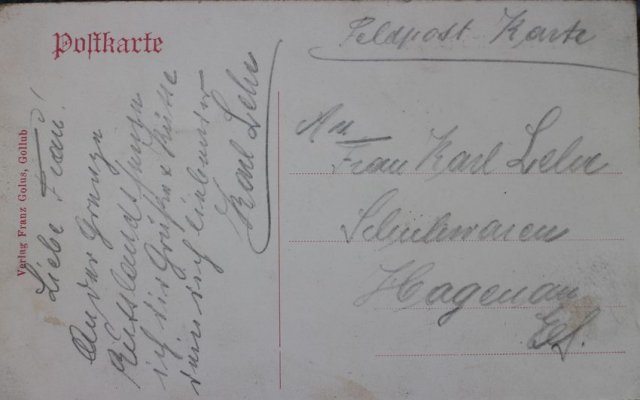 Postkarte
Feldpost Karte
An
Frau Karl Lehr
Schuhwaren
Hagenau
Els.
Liebe Frau!
An der Grenze
Russlands
ich dir Grüße & Küsse
dein dich liebender
Karl Lehr
Verlag Franz Golus, Gollub